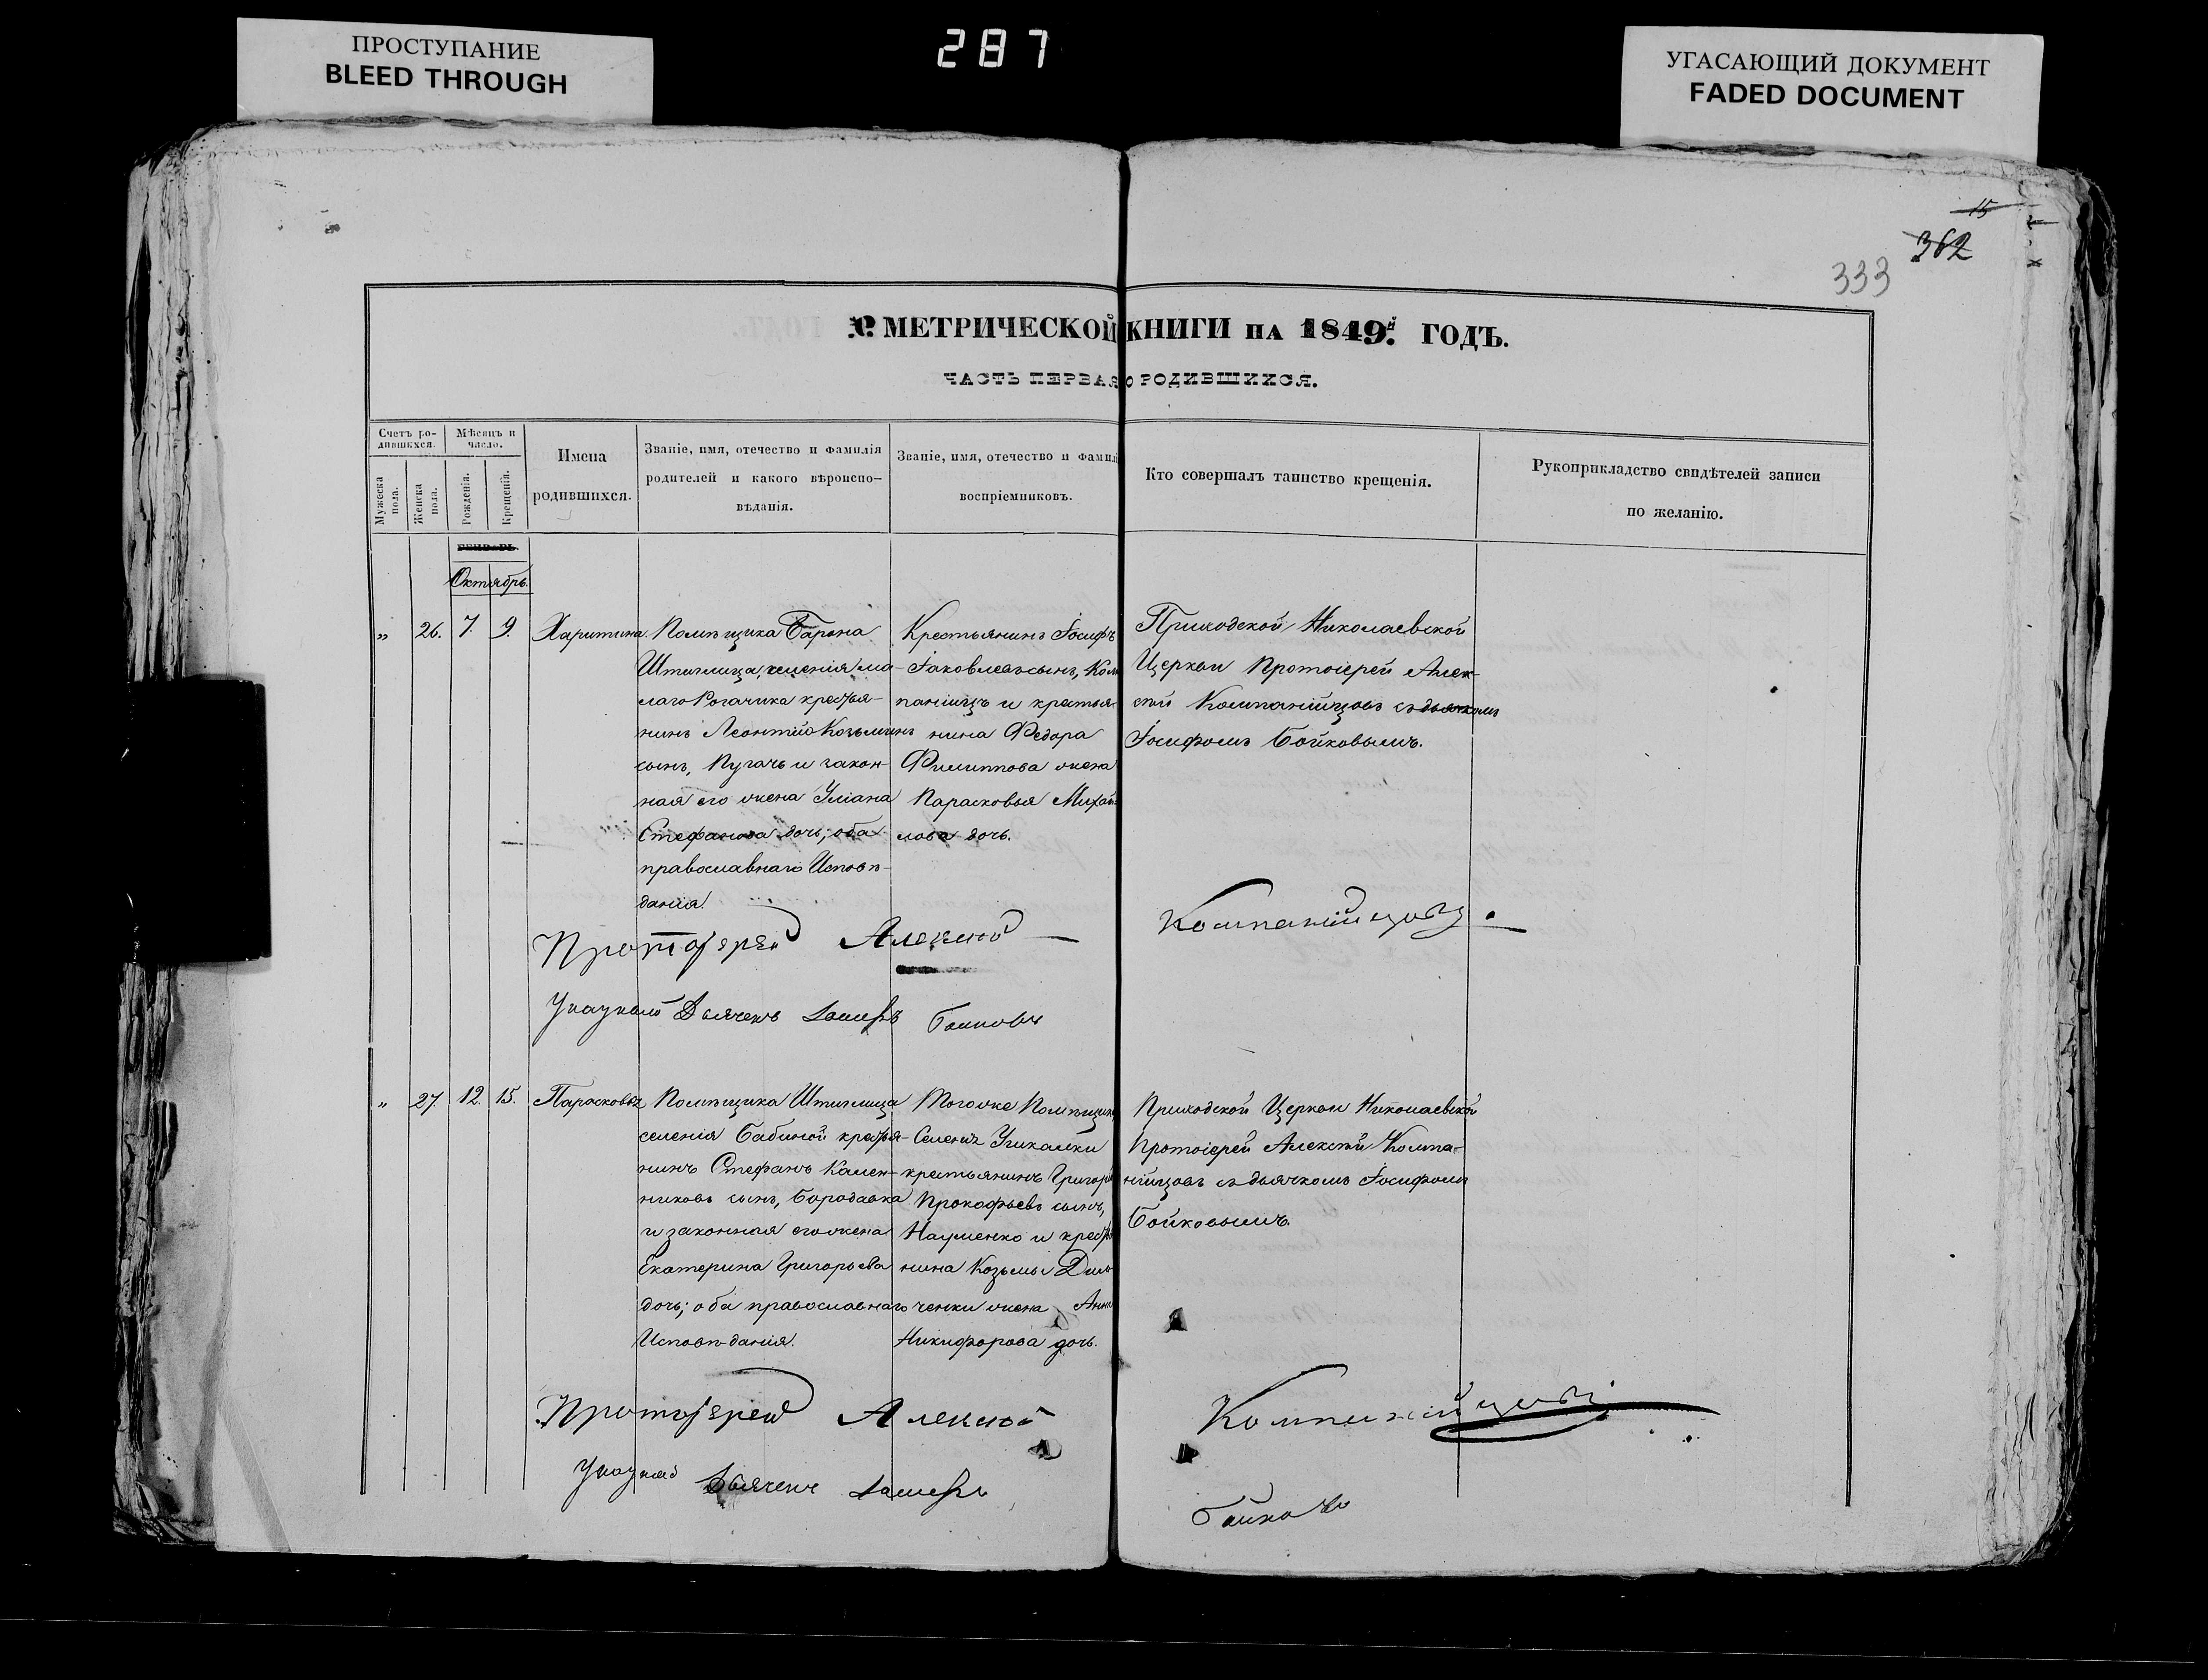 ПРОСТУПАНИЕ
BLEED THROUGH
287
УГАСАЮЩИЙ ДОКУМЕНТ
FADED DOCUMENT
15
362
333
МЕТРИЧЕСКОЙ КНИГИ НА 1849й ГОДЪ.
ЧАСТЬ ПЕРВАЯ О РОДИВШИХСЯ.
Счетъ ро-
дившихся.
Мѣсяцъ и
число.
Мужеска
пола.
Женска
пола.
Рожденія.
Крещенія.
Имена
родившихся.
Званіе, имя, отечество и фамилія
родителей и какого вѣроиспо-
вѣданія.
Званіе, имя, отечество и фамилі
воспріемниковъ.
Кто совершалъ таинство крещенія.
Рукоприкладство свидѣтелей записи
по желанію.
Октябрь.
„ 26. 7. 9. Харитина.
Помѣщика Барона
Штиглица, селенія ма-
лаго Рогачика крестья-
нинъ Леонтій Козьминъ
сынъ, Пугачь и закон-
ная его жена Уліана
Стефанова дочь; оба
православнаго Исповѣ-
данія.
Крестьянинъ Іосифъ
Іаковлевъ сынъ, Ком
паніицъ и крестья-
нина Федора
Филиппова жена
Парасковья Михай-
лова дочь.
Приходской Николаевской
Церкви Протоіерей Алек-
сѣй Компанійцовъ съ дьячкомъ
Іосифомъ Бойковымъ.
Протоіерей Алексій Компанійцовъ.
Указной Дьячекъ Іосифъ Бойковъ
„ 27. 12. 15. Парасковья
Помѣщика Штиглица
селенія Бабиной крестья-
нинъ Стефанъ Камен-
никовъ сынъ, Бородавка
и законная его жена
Екатерина Григорьева
дочь; оба православнаго
Исповѣданія.
Тогоже Помѣщик
Селенія Ушкалки
крестьянинъ Григорі
Прокофьевъ сынъ,
Науменко и крестья
нина Козьмы Дим
ченки жена Анна
Никифорова дочь.
Приходской Церкви Николаевской
Протоіерей Алексѣй Компа-
нійцовъ съ дьячкомъ Іосифомъ
Бойковымъ.
Протоіерей Алексій Компанійцовъ
Указной Дьячекъ Іосифъ Бойковъ